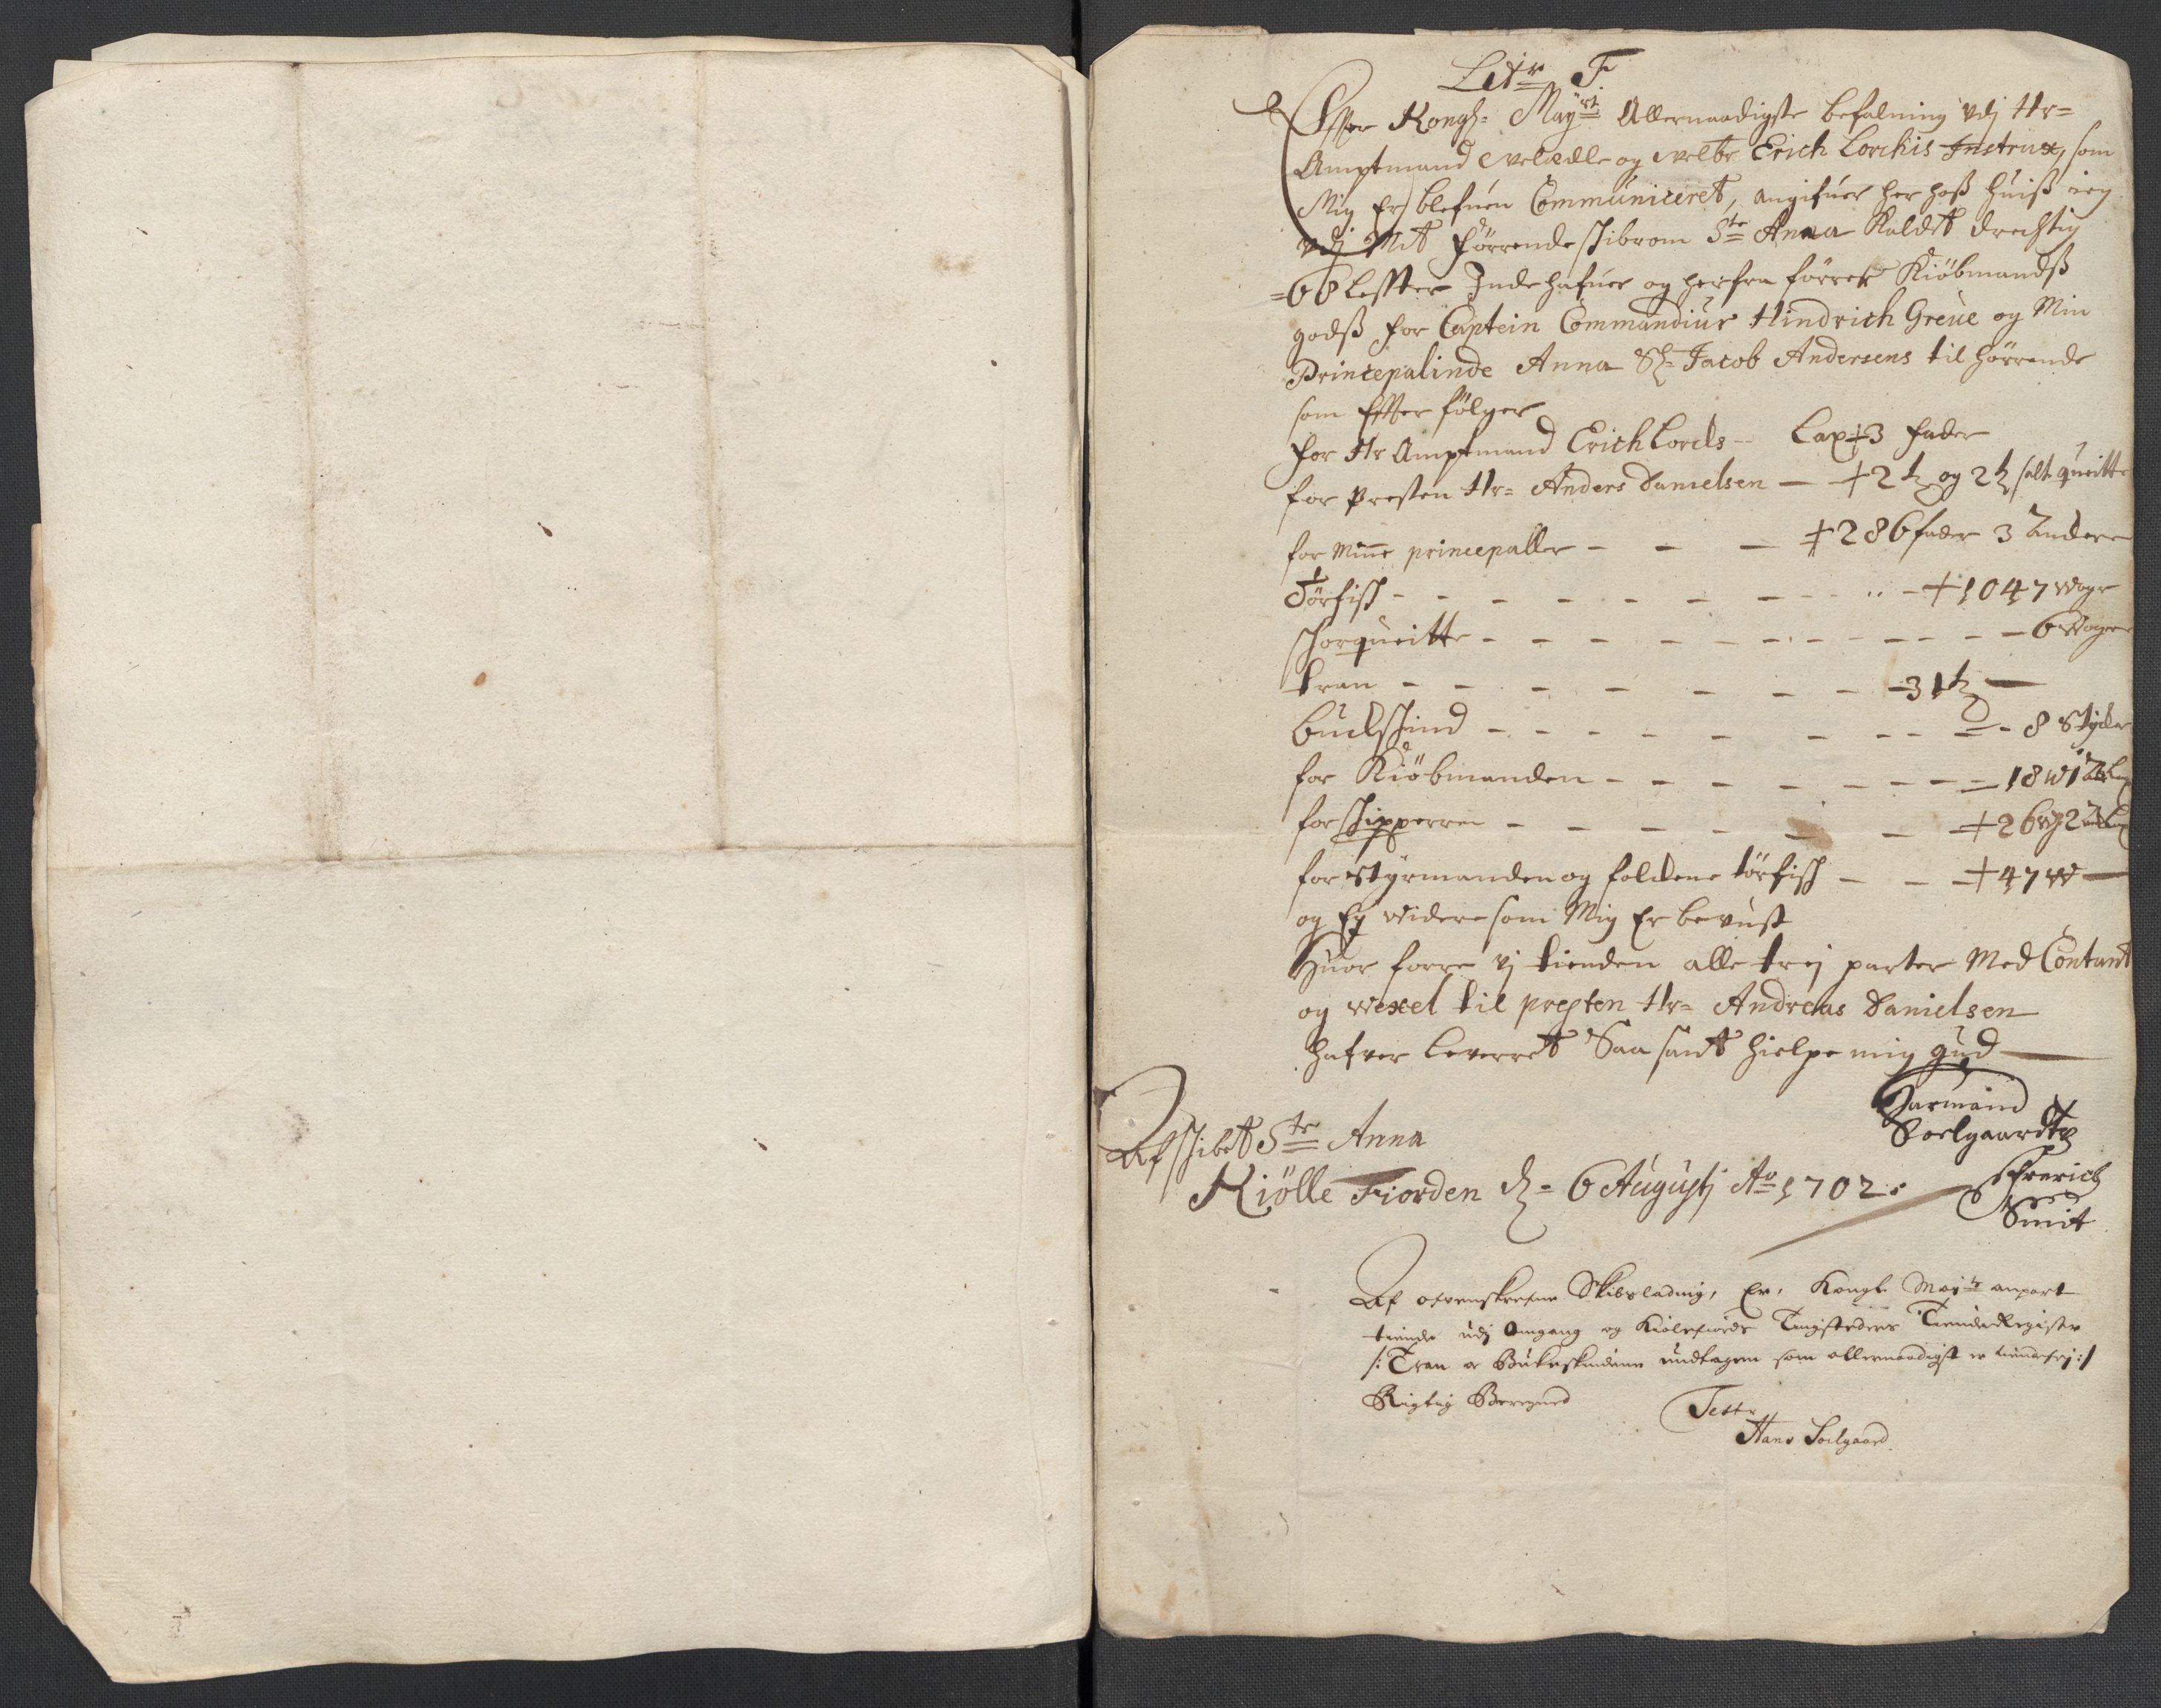 Litr F
Efter Kongl= Mayst Allernaadigste befalning vdj Hr=
Amptmand velædle og velbr Erich Lorchis Instrux, som
Mig Er blefuen Communiceret, angifuer her hoß huiß ieg
vdj Mit förrende skibrom Ste Anna Kaldet drechtig
=68 lester Inde hafuer og herfra förrer Kiöbmandß
godß for Captein Commandiur Hindrich Greue og Min
Princepalinde Anna Sl= Jacob Andersens til hörrende
som Effter fölger
for Hr Amptmand Erich Lorcks - Lax 3 fader
for Presten Hr= Anders Danielsen - 2 t og 2 t salt queitte
for Minne princepaller - - - 286 fader 3 Andere
Törfisk - - - - - - - 1047 Woge
skorqueitte - - - - - - - 6 Woger
tran - - - - - - - 31 t
buckskind - - - - - - - 8 Stycker
for Kiöbmanden - - - - - - 18 W 1
for skipperen - - - - - - 26 W 2
for Styrmanden og folckene törfisk - - - 47 W
og Ej widere som Mig Er bevust
Huor forre vj tienden alle trej parter Med Contant
og wexel til presten Hr= Andreas Danielsen
hafver leverret Saa sandt hielpe mig gud
Harmand
Soelgaardt
Af skibet Ste Anna
Kiölle Fiorden d= 6 Augustj Ao 1702.
Frerich
Smit
Af ofvenskrefne Skibsladning, Er, Kongl Mayts anpart
tiende udj Omgang og Kiölefiords Tingsteders Tiende Register
/: Tran og Bukeskindene undtagen som allernaadigst er tiendefrj :/
Rigtig Beregned
Tester
Hans Soelgaard